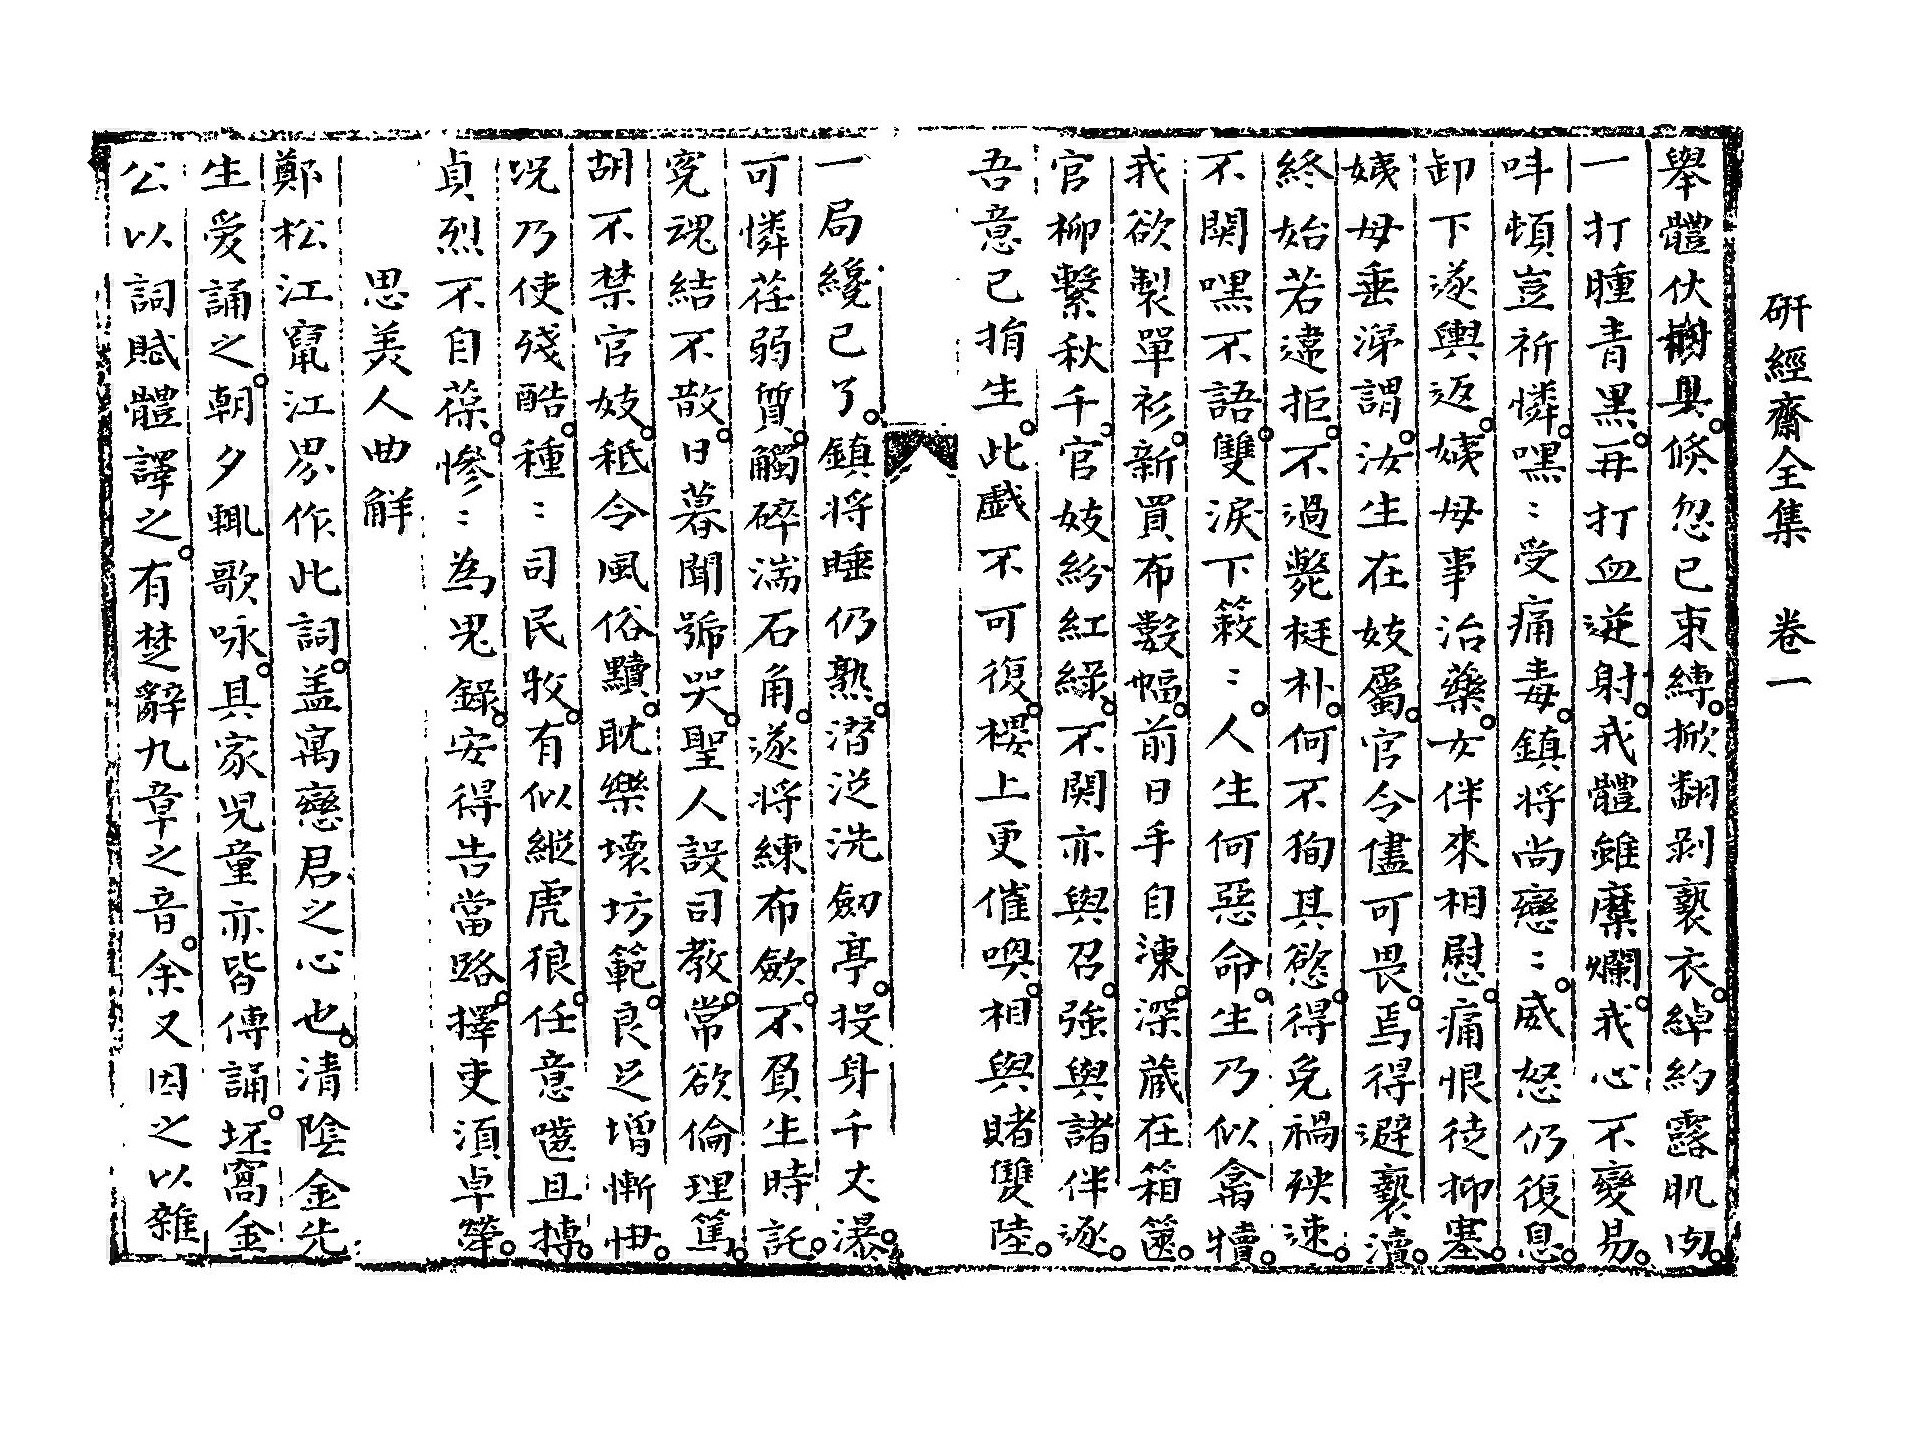 研經齋全集 卷一
舉體伏樹臭倏忽已束縛掀翻剥褻衣綽約露肌肉
一打腫青黑再打血迸射我體雖糜爛我心不變易
呌頓豈祈憐嘿:受痛毒鎮將尚戀:威怒仍復息
卸下遂輿返姨母事治藥女伴來相慰痛恨徒抑塞
姨母垂涕謂汝生在妓屬官令儘可畏焉得避褻瀆
終始若違拒不過斃梃朴何不徇其慾得免禍殃速
不関嘿不語雙淚下簌:人生何惡命生乃似禽犢
我欲製單衫新買布數幅前日手自湅深藏在箱篋
官柳繫秋千官妓紛紅綠不関亦與召強與諸伴逐
吾意已捐生此戱不可復樓上更催喚相與賭雙陸
一局纔已了鎮將睡仍熟潛從洗劒亭投身千丈瀑
可憐荏弱質觸碎湍石角遂將練布歛不負生時託
寃魂結不散日暮聞號哭聖人設司教常欲倫理篤
胡不禁官妓秪令風俗黷耽樂壞坊範良足增慚忸
况乃使殘酷種:司民牧有似縱虎狼任意噬且搏
貞烈不自葆慘:為鬼錄安得告當路擇吏須卓犖
思美人曲解
鄭松江竄江界作此詞盖寓戀君之心也清陰金先
生爱誦之朝夕輒歌咏其家児童亦皆傳誦坯窩金
公以詞賦體譯之有楚辭九章之音余又因之以雜